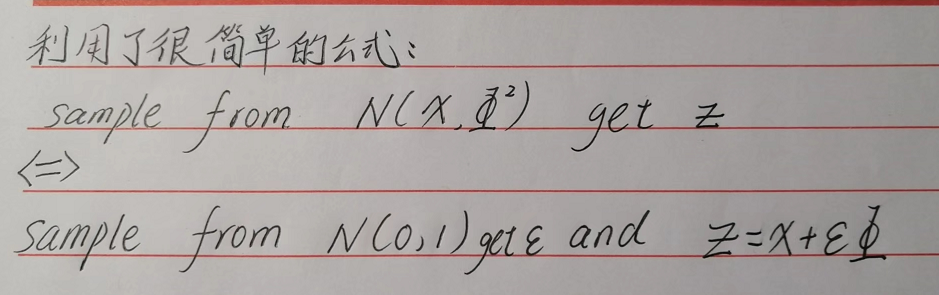 利用了很简单的公式：
sample from N(X,Φ²) get z
<=>
sample from N(0,1) get ε and z=x+εΦ